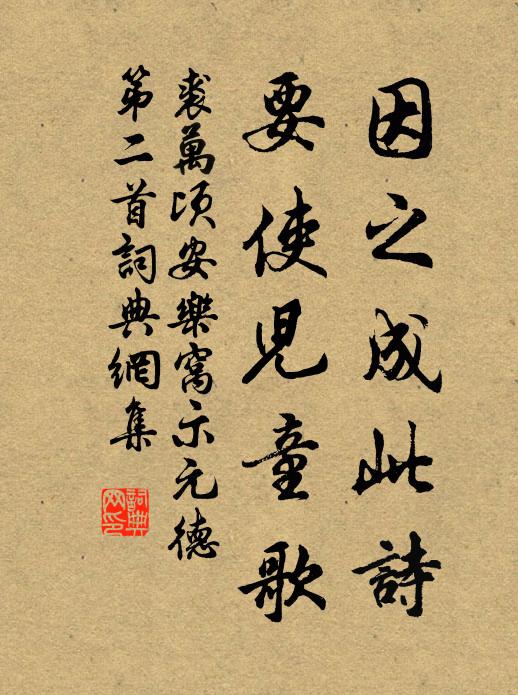 因之成此詩
要使児童歌
裘萬頃安樂窩示元德
第二首詞典網集
詞典網印